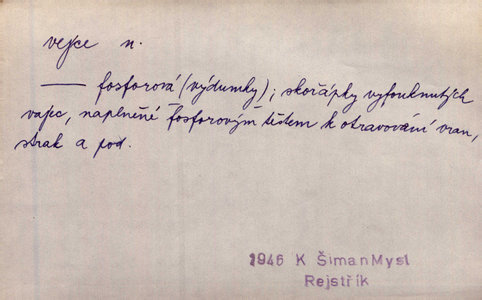 vejce n.
—— fosforová (výdumky); skořápky vyfouknutých
vajec, naplněné fosforovým těstem k otravování vran,
strak a pod.
1946 K ŠimanMysl
Rejstřík